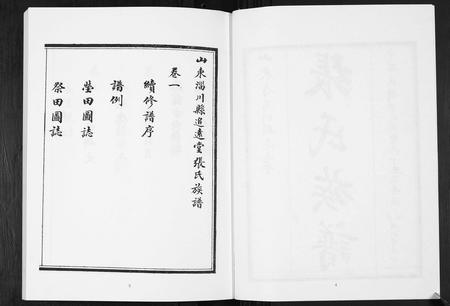 山東淄川縣追遠堂張氏族譜
卷一
續修譜序
譜例
塋田圖誌
祭田圖誌
張氏族譜